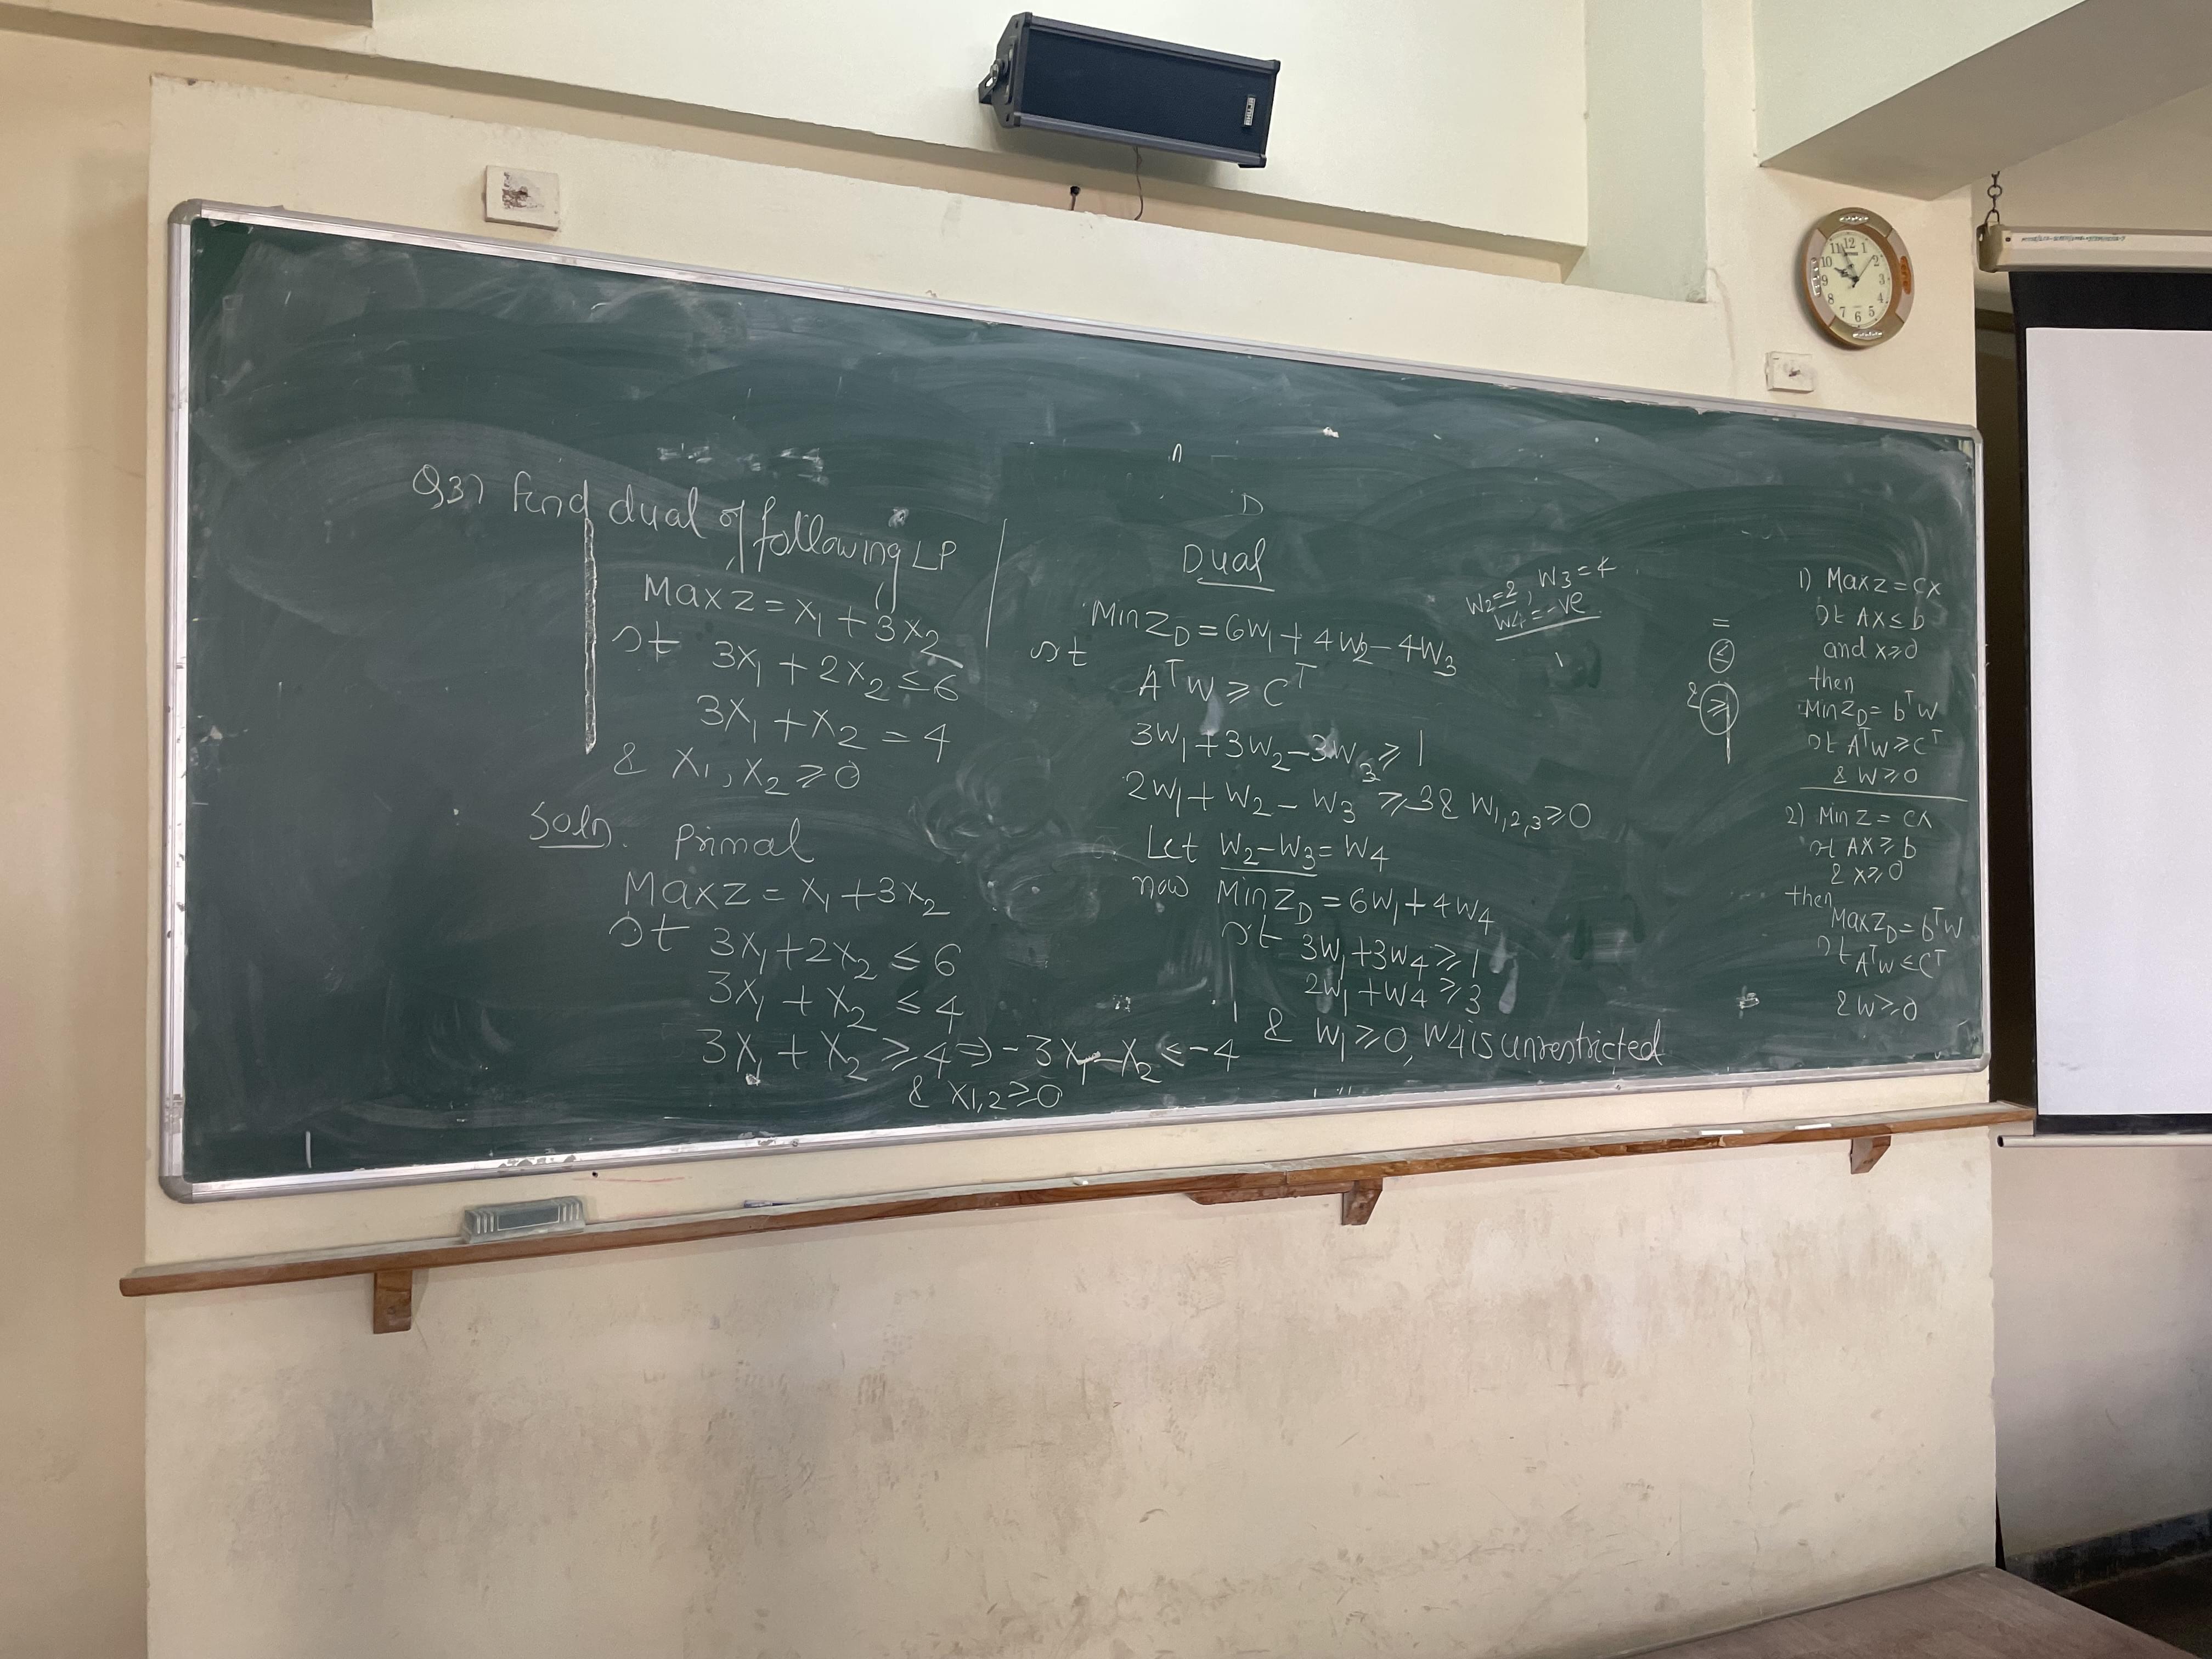 Q3) Find dual of following LP
Max Z = x₁ + 3x₂
st 3x₁ + 2x₂ ≤ 6
3x₁ + x₂ = 4
& x₁, x₂ ≥ 0
Soln. Primal
Max Z = x₁ + 3x₂
st 3x₁ + 2x₂ ≤ 6
3x₁ + x₂ ≤ 4
3x₁ + x₂ ≥ 4 ⇒ -3x₁ - x₂ ≤ -4
& x₁,₂ ≥ 0
D
Dual
Min Z_D = 6w₁ + 4w₂ - 4w₃
st
AᵀW ≥ Cᵀ
3w₁ + 3w₂ - 3w₃ ≥ 1
2w₁ + w₂ - w₃ ≥ 3 & w₁,₂,₃ ≥ 0
Let w₂ - w₃ = w₄
now Min Z_D = 6w₁ + 4w₄
st 3w₁ + 3w₄ ≥ 1
2w₁ + w₄ ≥ 3
& w₁ ≥ 0, w₄ is unrestricted
w₂ = 2, w₃ = 4
w₄ = -ve
=
≤
& ≥
1) Max Z = CX
st AX ≤ b
and x ≥ 0
then
Min Z_D = bᵀW
st AᵀW ≥ Cᵀ
& W ≥ 0
2) Min Z = CX
st AX ≥ b
& x ≥ 0
then
Max Z_D = bᵀW
st AᵀW ≤ Cᵀ
& W ≥ 0
AHUJA
12
1
2
3
4
5
6
7
8
9
10
11